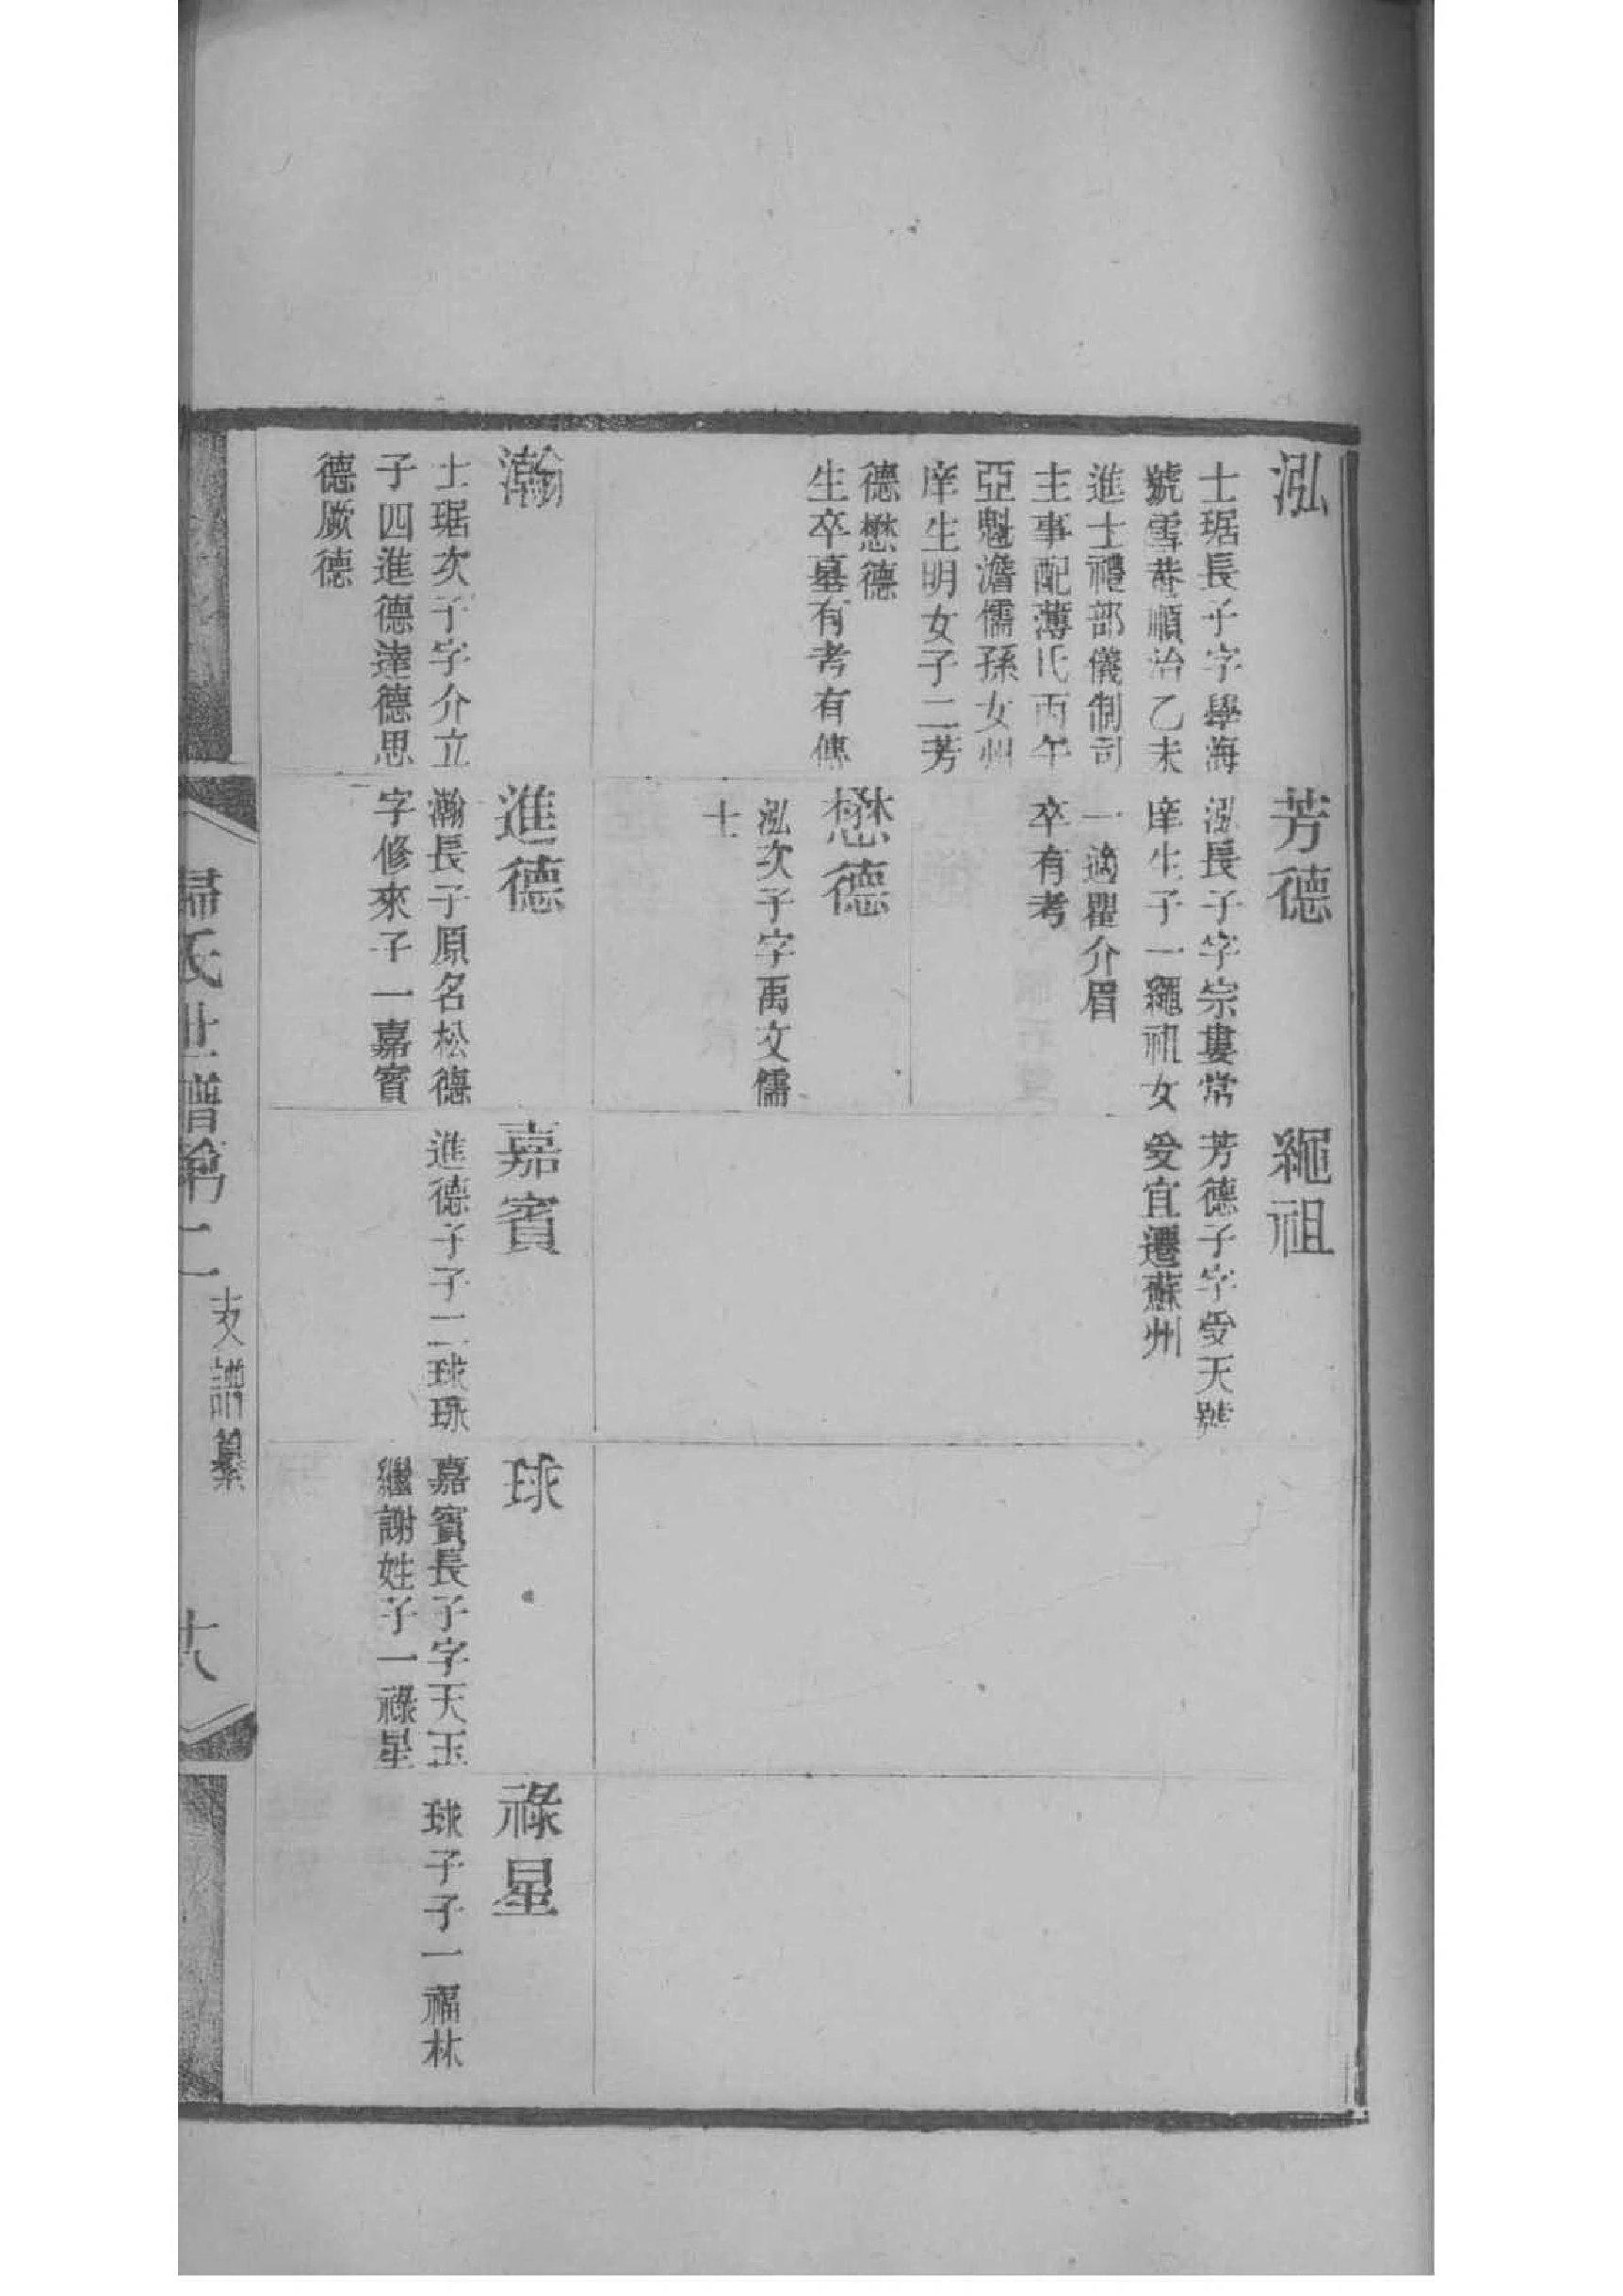 泓
士琚長子字學海
號雪巷順治乙未
進士禮部儀制司
主事配薄氏丙午
亞魁澹儒孫女州
庠生明女子二芳
德懋德
生卒墓有考有傳
芳德
泓長子字宗婁常
庠生子一繩祖女
一適瞿介眉
卒有考
懋德
泓次子字禹文儒
士
繩祖
芳德子字受天號
爰宜遷蘇州
瀚
士琚次子字介立
子四進德達德思
德厥德
進德
瀚長子原名松德
字修來子一嘉賓
嘉賓
進德子子二球琢
球
嘉賓長子字天玉
繼謝姓子一祿星
祿星
球子子一福林
歸氏世譜第二
支譜纂
十八